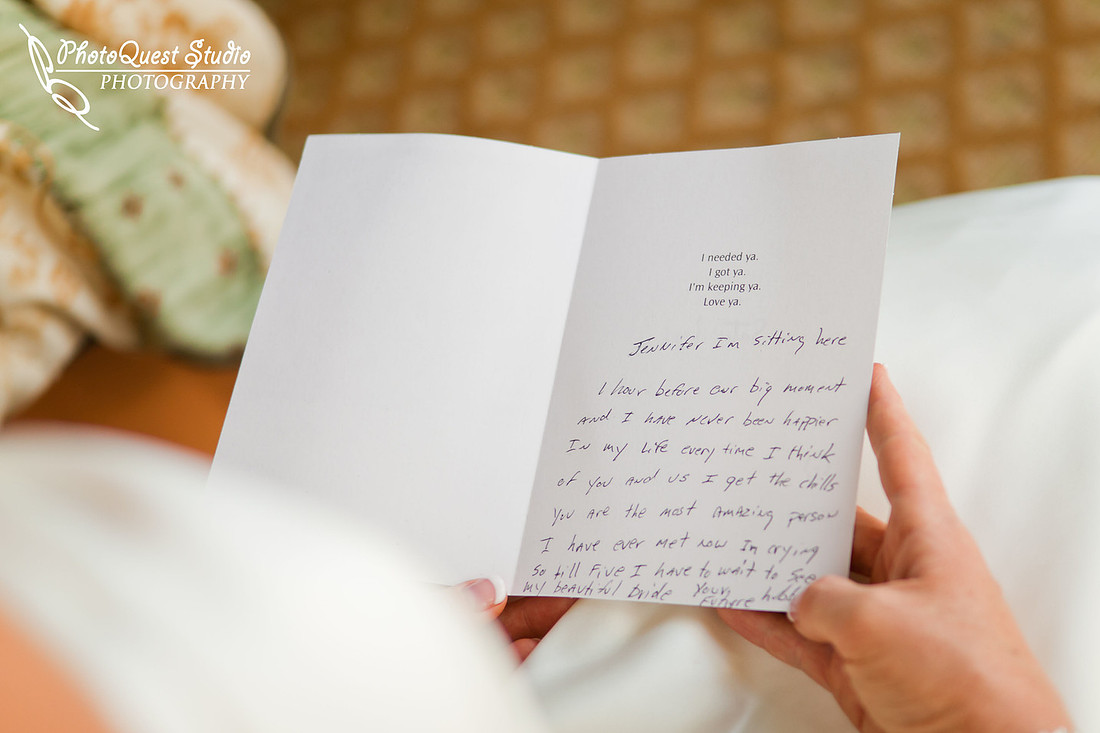 PhotoQuest Studio
PHOTOGRAPHY
I needed ya.
I got ya.
I'm keeping ya.
Love ya.
Jennifer Im sitting here
1 hour before our big moment
And I have never been happier
In my Life every time I think
of you and us I get the chills
You are the most amazing person
I have ever met now Im crying
So till Five I have to wait to see
my beautiful bride Your
Future